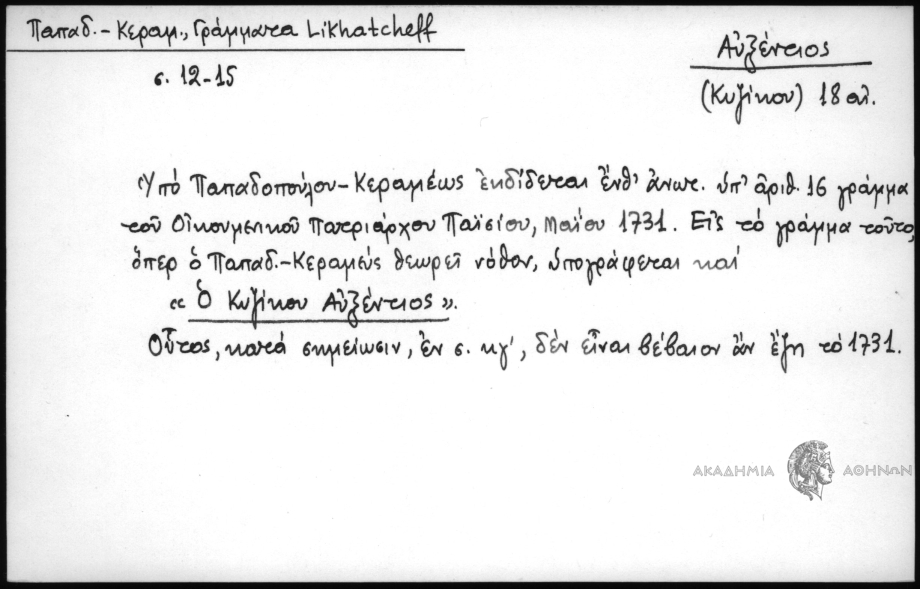 Παπαδ.-Κεραμ., Γράμματα Likhatcheff
σ. 12-15
Αὐξέντιος
(Κυζίκου) 18 αἰ.
Ὑπό Παπαδοπούλου-Κεραμέως ἐκδίδεται ἔνθ' ἀνωτ. ὑπ' ἀριθ. 16 γράμμα
τοῦ Οἰκουμενικοῦ Πατριάρχου Παϊσίου, Μαΐου 1731. Εἰς τό γράμμα τοῦτο,
ὅπερ ὁ Παπαδ.-Κεραμεύς θεωρεῖ νόθον, ὑπογράφεται καί
« Ὁ Κυζίκου Αὐξέντιος ».
Οὗτος, κατά σημείωσιν, ἐν σ. κγ', δέν εἶναι βέβαιον ἄν ἔζη τό 1731.
ΑΚΑΔΗΜΙΑ ΑΘΗΝΩΝ